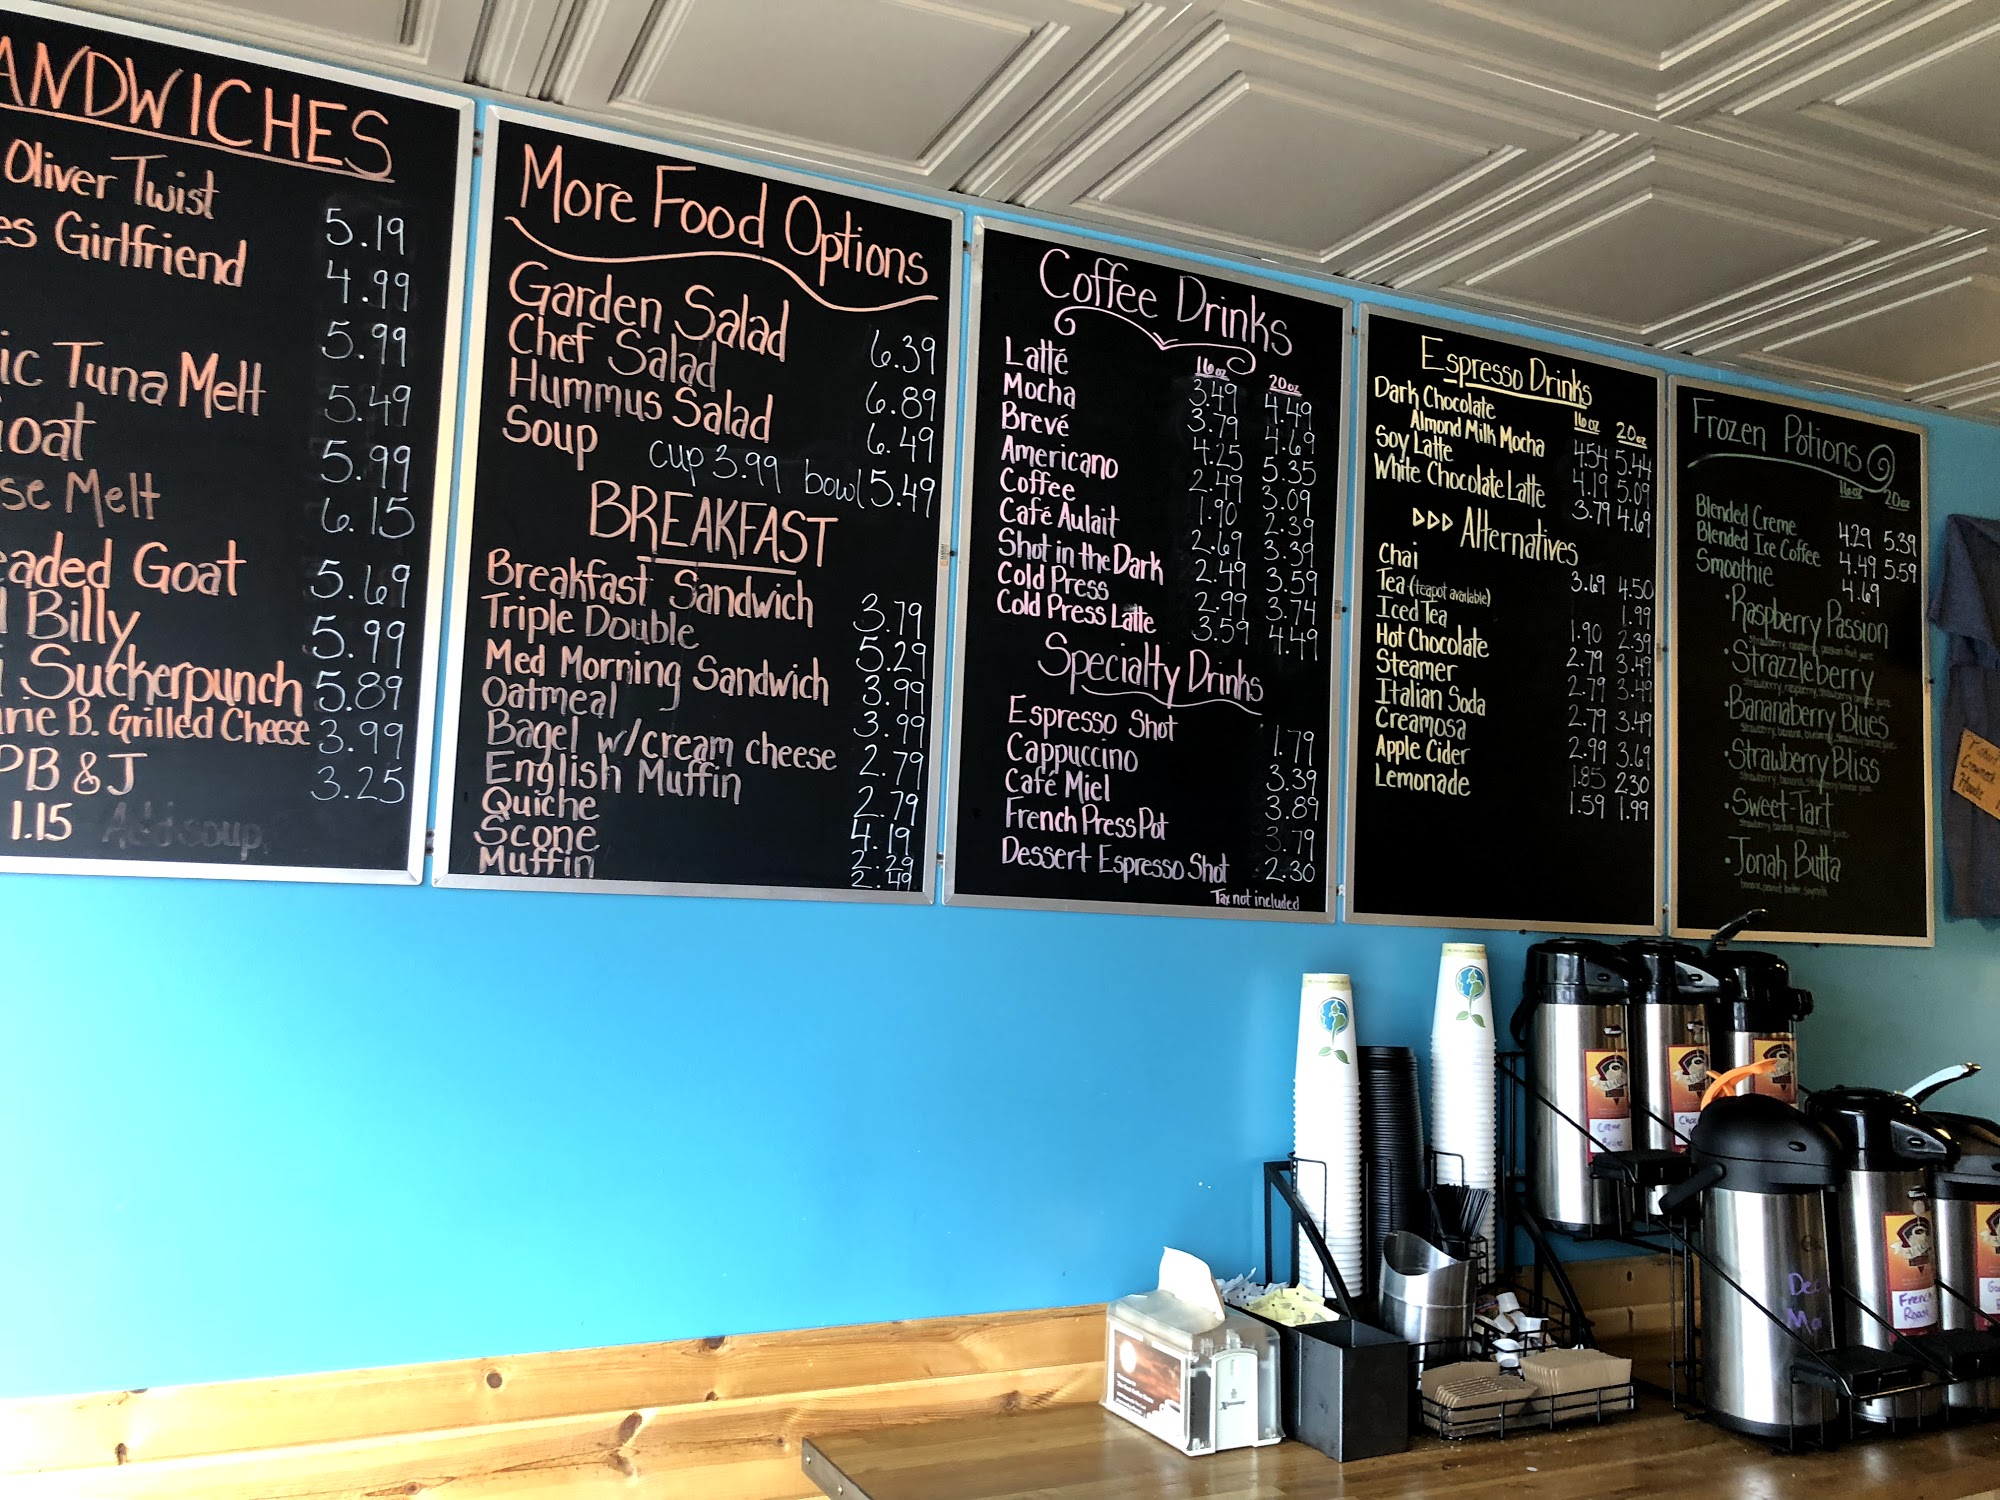 ANDWICHES
Oliver Twist 5.19
es Girlfriend 4.99
5.99
ic Tuna Melt 5.49
oat 5.99
se Melt 6.15
eaded Goat 5.69
Billy 5.99
i Suckerpunch 5.89
rie B. Grilled Cheese 3.99
PB & J 3.25
1.15 Add soup
More Food Options
Garden Salad 6.39
Chef Salad 6.89
Hummus Salad 6.49
Soup cup 3.99 bowl 5.49
BREAKFAST
Breakfast Sandwich 3.79
Triple Double 5.29
Med Morning Sandwich 3.99
Oatmeal 3.99
Bagel w/cream cheese 2.79
English Muffin 2.79
Quiche 4.19
Scone 2.29
Muffin 2.49
Coffee Drinks
16oz 20oz
Latté 3.49 4.49
Mocha 3.79 4.69
Brevé 4.25 5.35
Americano 2.49 3.09
Coffee 1.90 2.39
Café Aulait 2.69 3.39
Shot in the Dark 2.49 3.59
Cold Press 2.99 3.74
Cold Press Latte 3.59 4.49
Specialty Drinks
Espresso Shot 1.79
Cappuccino 3.39
Café Miel 3.89
French Press Pot 3.79
Dessert Espresso Shot 2.30
Tax not included
Espresso Drinks
16oz 20oz
Dark Chocolate
Almond Milk Mocha 4.54 5.44
Soy Latte 4.19 5.09
White Chocolate Latte 3.79 4.69
Alternatives
Chai 3.69 4.50
Tea (teapot available) 1.99
Iced Tea 1.90 2.39
Hot Chocolate 2.79 3.49
Steamer 2.79 3.49
Italian Soda 2.79 3.49
Creamosa 2.99 3.69
Apple Cider 1.85 2.30
Lemonade 1.59 1.99
Frozen Potions
16oz 20oz
Blended Creme 4.29 5.39
Blended Ice Coffee 4.49 5.59
Smoothie 4.69
• Raspberry Passion
strawberry, raspberry, passion fruit juice
• Strazzleberry
• Bananaberry Blues
• Strawberry Bliss
• Sweet-Tart
strawberry, banana, passion fruit juice
• Jonah Butta
banana, peanut butter, soymilk
Creme
French
Roast